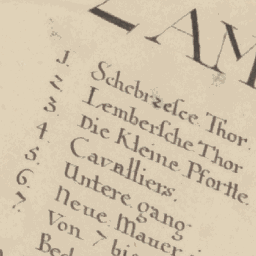 ZAM
1. Schebrzesce Thor.
2. Lembersche Thor
3. Die Kleine Pfortte.
4. Cavalliers.
5. Untere gang.
6. Neue Mauer
7. Von 7 bis
Bed